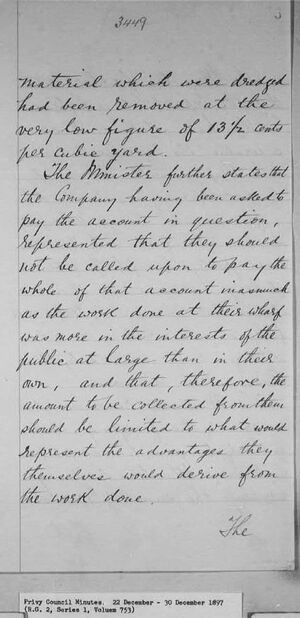 3449
material which were dredged
had been removed at the
very low figure of 13½ cents
per cubic yard.
The Minister further states that
the Company having been asked to
pay the account in question,
represented that they should
not be called upon to pay the
whole of that account inasmuch
as the work done at their wharf
was more in the interests of the
public at large than in their
own, and that, therefore, the
amount to be collected from them
should be limited to what would
represent the advantages they
themselves would derive from
the work done.
The
Privy Council Minutes. 22 December - 30 December 1897
(R.G. 2, Series 1, Volume 753)